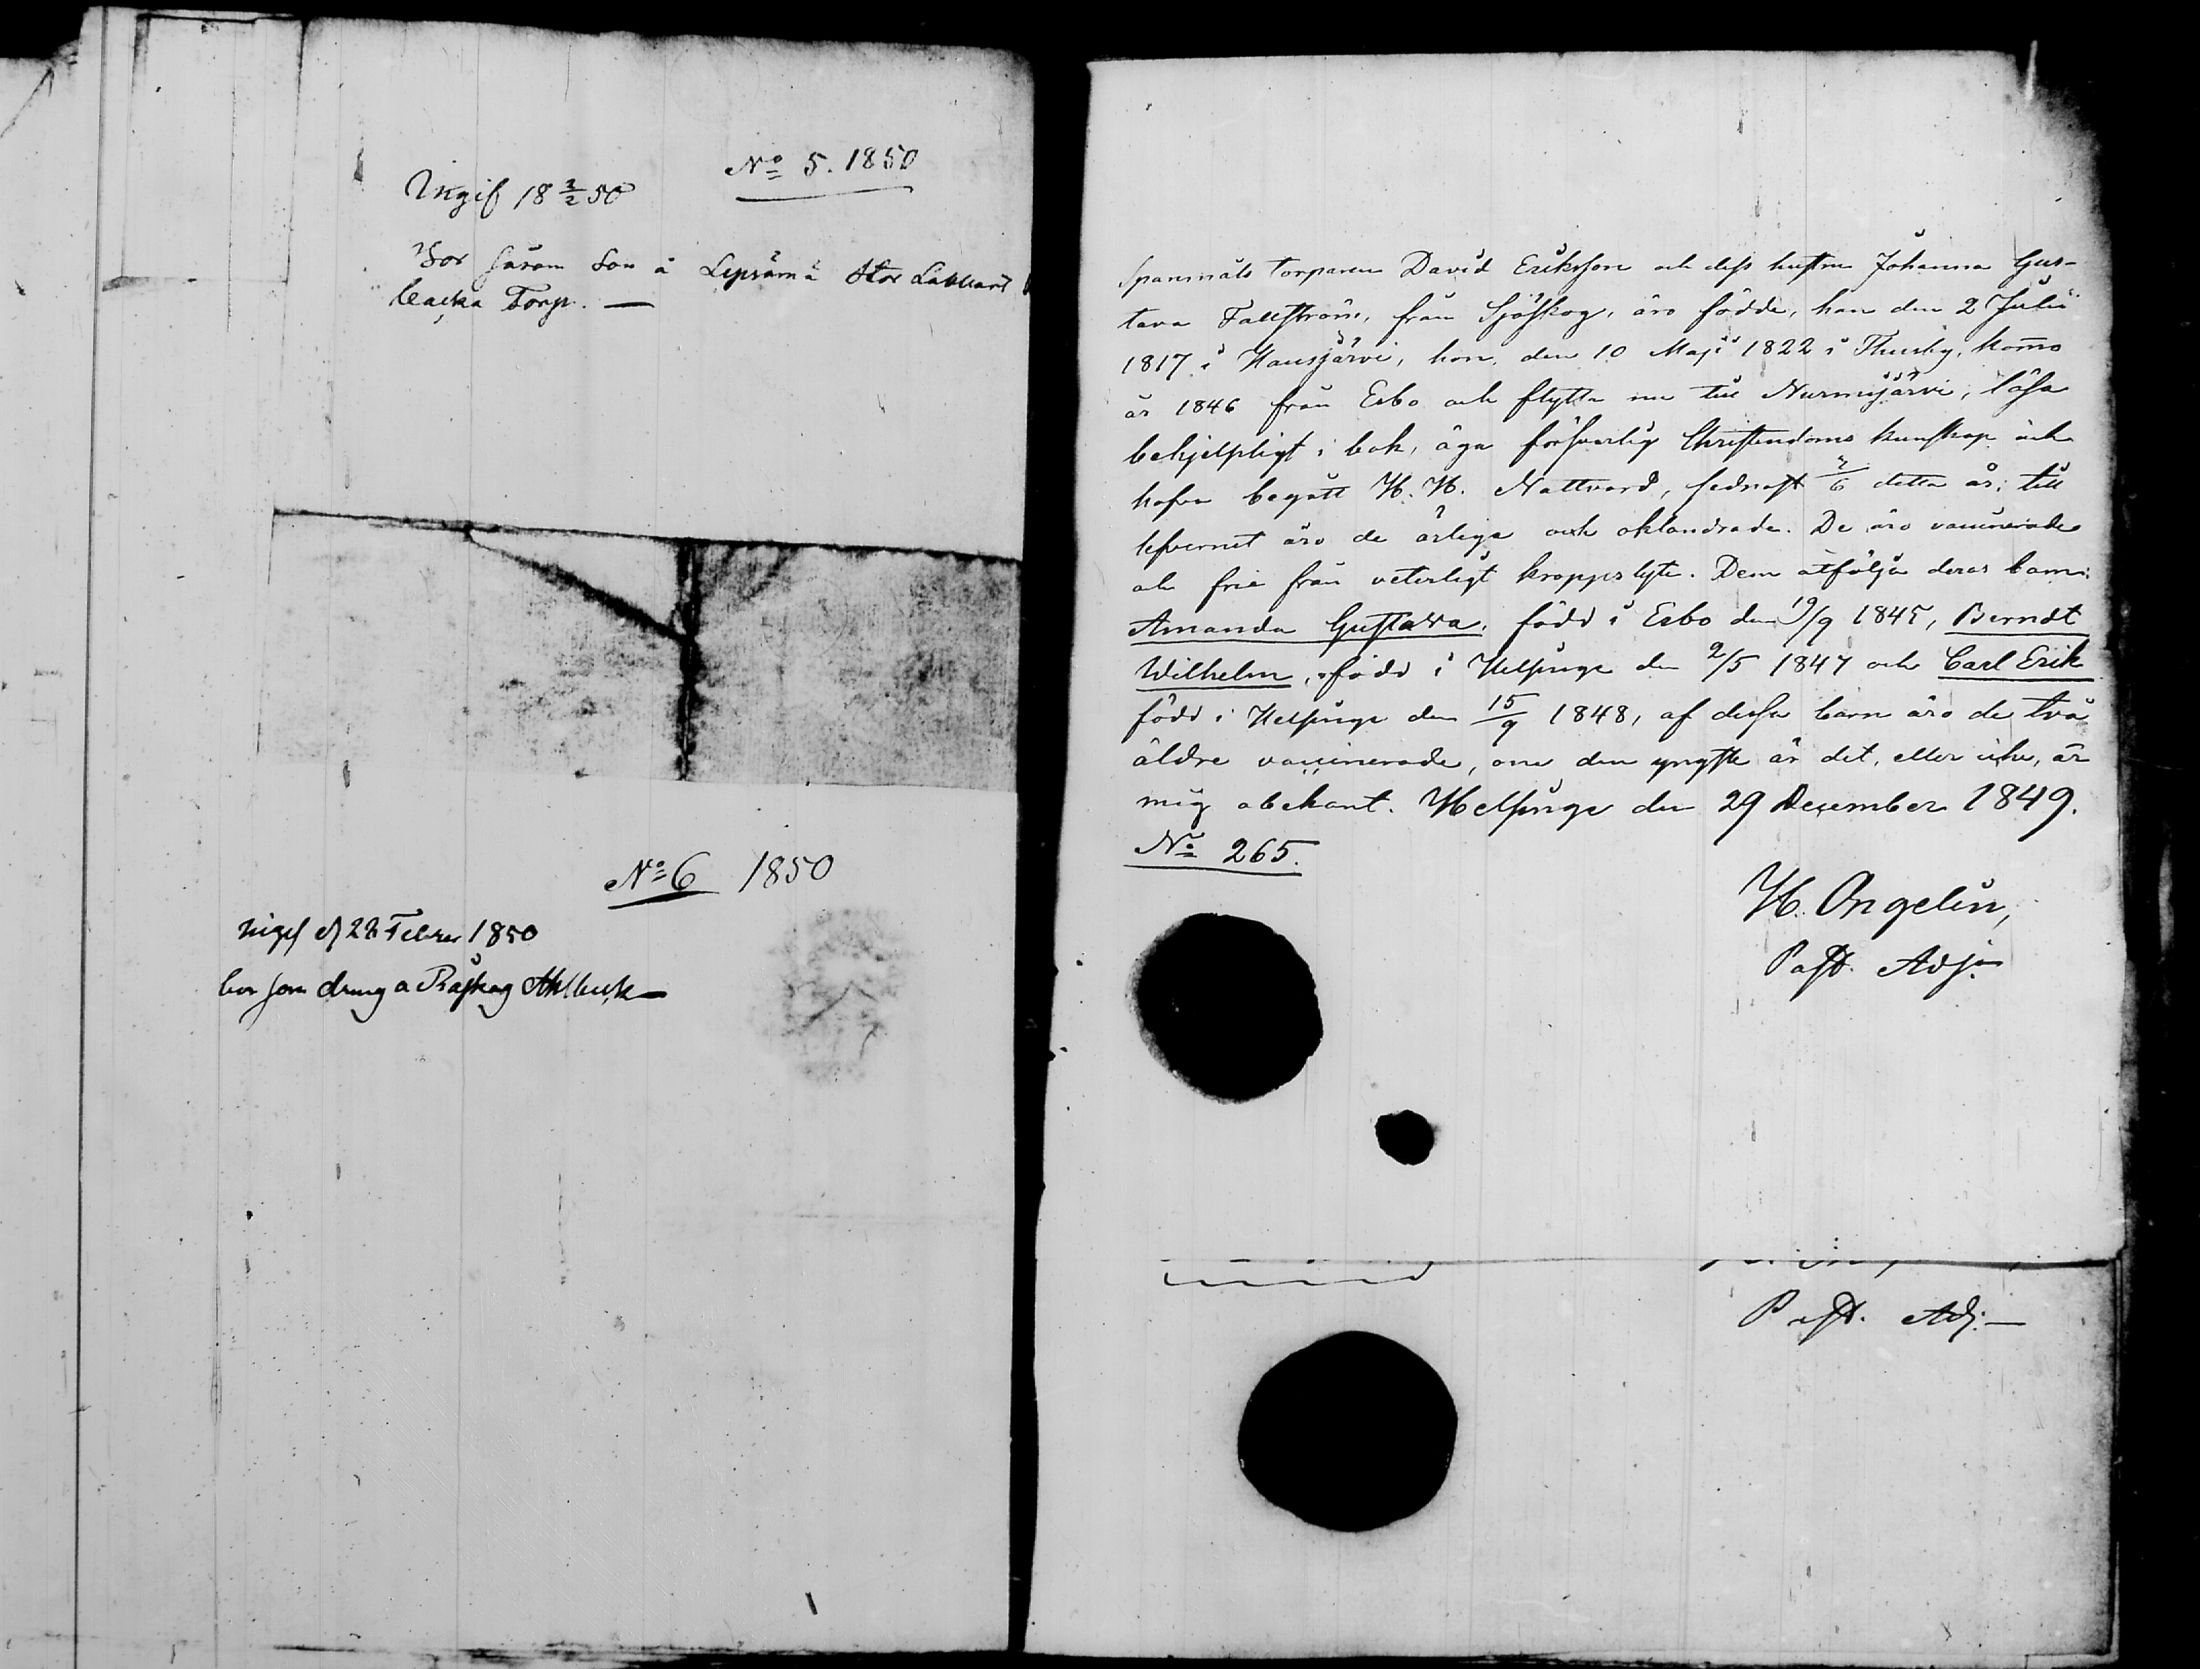 No 5. 1850
Ingif 18 2/2 50
Bor såsom Son å Lepsämä Stor
backa Torp. —
No 6 1850
d 28 Febr 1850
bor som dräng å Röjskog
Spanmåls torparen David Eriksson och dess hustru Johanna Gus-
tava Fallström, från Sjöskog, äro födde, han den 2 Julii
1817 i Hausjärvi, hon den 10 Maji 1822 i Thusby, kommo
år 1846 från Esbo och flytta nu till Nurmijärvi, läsa
behjelpligt i bok, äga försvarlig Christendoms kunskap och
hafva begått H. H. Nattvard, sednast /6 detta år; till
lefvernet äro de ärliga och oklandrade. De äro vaccinerade
och frie från veterligt kroppslyte. Dem åtfölja deras barn:
Amanda Gustava, född i Esbo den 19/9 1845, Berndt
Wilhelm, född i Helsinge den 2/5 1847 och Carl Erik
född i Helsinge den 15/9 1848, af dessa barn äro de två
äldre vaccinerade, om den yngste är det, eller icke, är
mig obekant. Helsinge den 29 December 1849.
No 265.
H. Ongelin,
Past. Adj.
Past. Adj. —